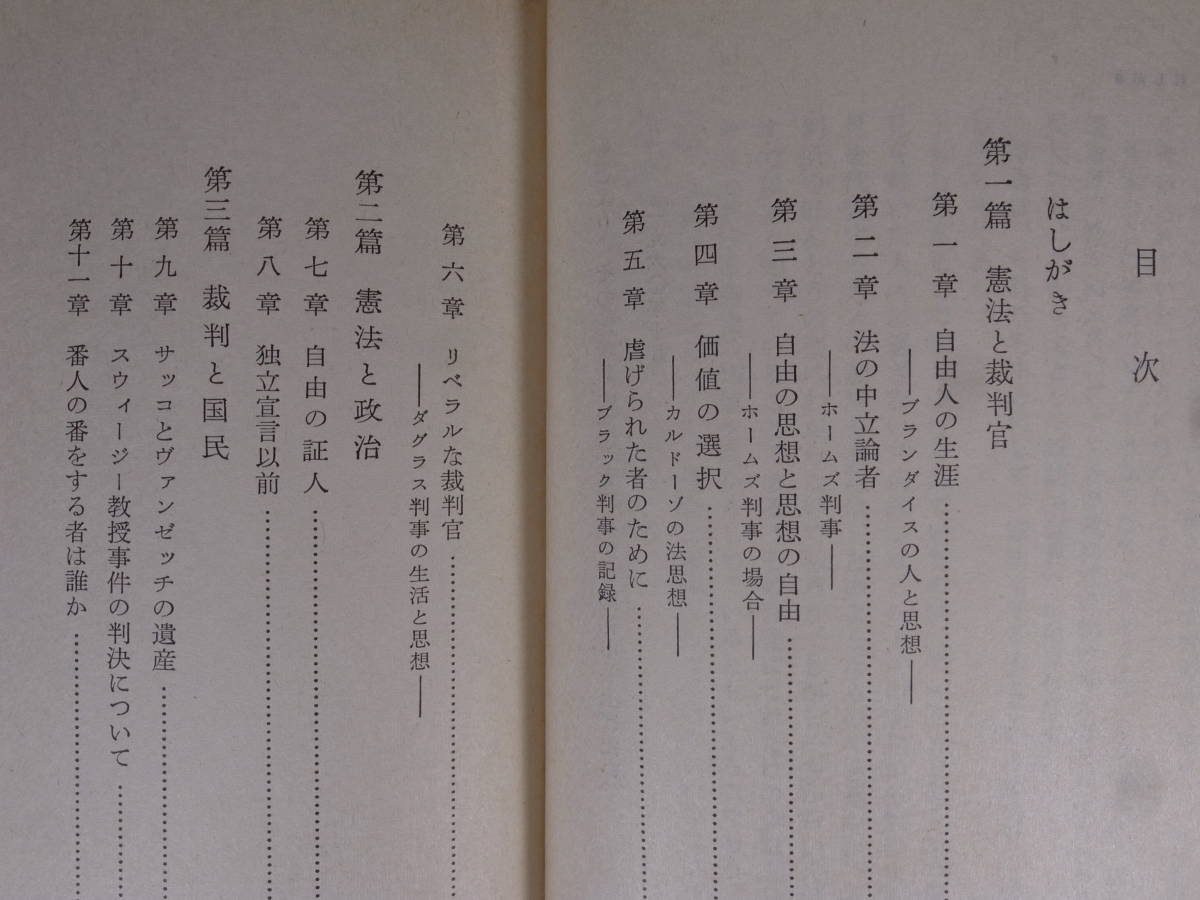 目次
はしがき
第一篇 憲法と裁判官
第一章 自由人の生涯……………………
――ブランダイスの人と思想――
第二章 法の中立論者……………………
――ホームズ判事――
第三章 自由の思想と思想の自由……………………
――ホームズ判事の場合――
第四章 価値の選択……………………
――カルドーゾの法思想――
第五章 虐げられた者のために……………………
――ブラック判事の記録――
第六章 リベラルな裁判官……………………
――ダグラス判事の生活と思想――
第二篇 憲法と政治
第七章 自由の証人……………………
第八章 独立宣言以前……………………
第三篇 裁判と国民
第九章 サッコとヴァンゼッチの遺産……………………
第十章 スウィージー教授事件の判決について……………………
第十一章 番人の番をする者は誰か……………………